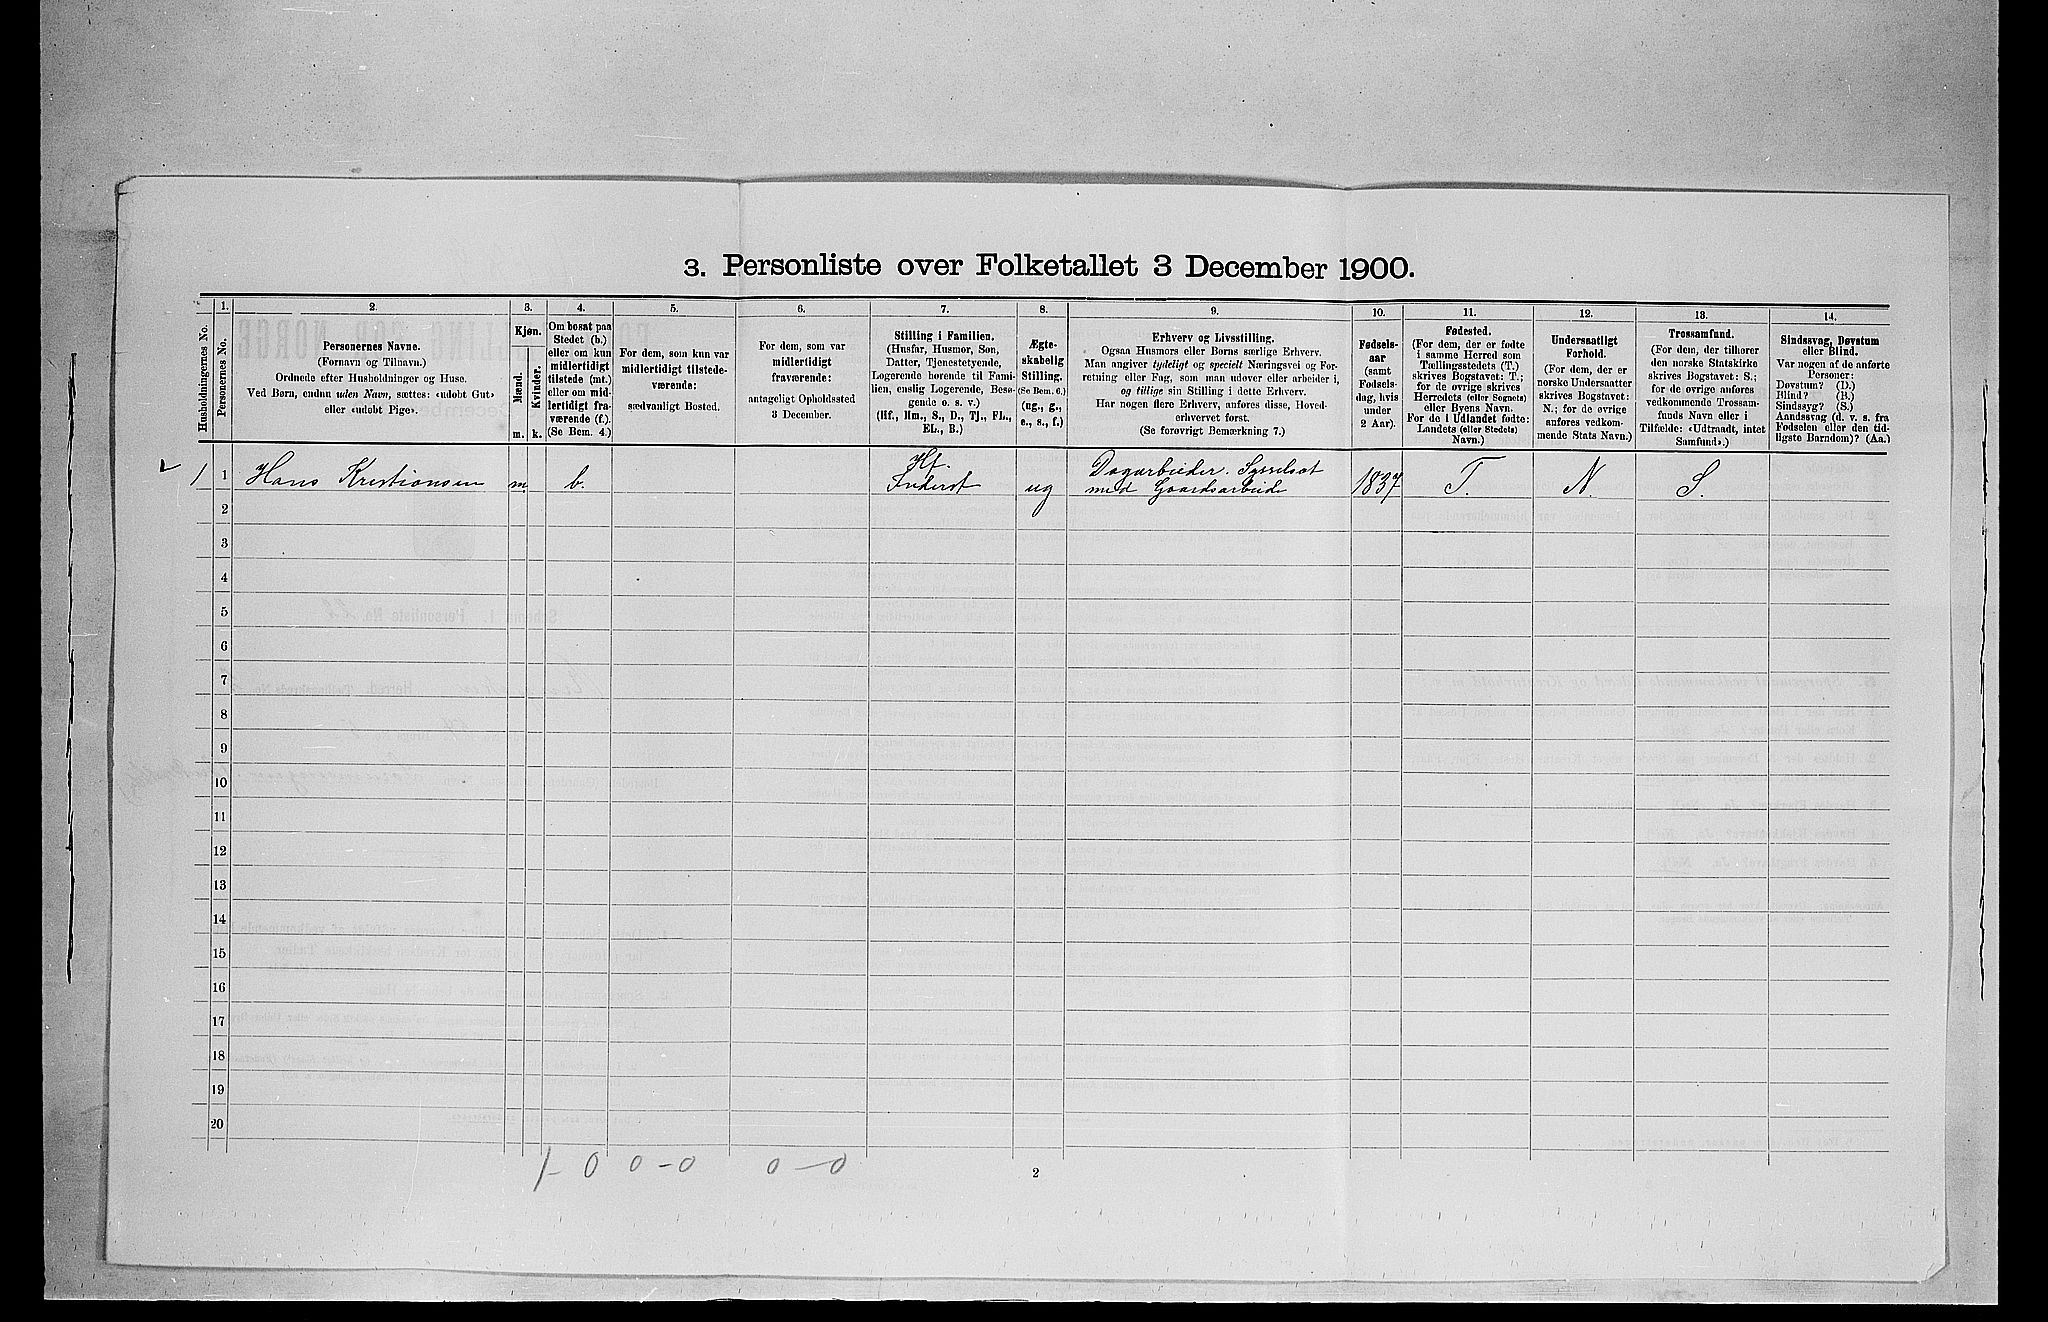 3. Personliste over Folketallet 3 December 1900.
Husholdningernes No.
1.
Personernes No.
2.
Personernes Navne.
(Fornavn og Tilnavn.)
Ordnede efter Husholdninger og Huse.
Ved Børn, endnu uden Navn, sættes: «udøbt Gut»
eller «udøbt Pige».
3.
Kjøn.
Mænd.
Kvinder.
m. k.
4.
Om bosat paa
Stedet (b.)
eller om kun
midlertidigt
tilstede (mt.)
eller om mid-
lertidigt fra-
værende (f.).
(Se Bem. 4.)
5.
For dem, som kun var
midlertidigt tilstede-
værende:
sædvanligt Bosted.
6.
For dem, som var
midlertidigt
fraværende:
antageligt Opholdssted
3 December.
7.
Stilling i Familien.
(Husfar, Husmor, Søn,
Datter, Tjenestetyende,
Logerende hørende til Fami-
lien, enslig Logerende, Besø-
gende o. s. v.)
(Hf., Hm., S., D., Tj., FL.,
EL., B.)
8.
Ægte-
skabelig
Stilling.
(Se Bem. 6.)
(ug., g.,
e., s., f.)
9.
Erhverv og Livsstilling.
Ogsaa Husmors eller Børns særlige Erhverv.
Man angiver tydeligt og specielt Næringsvei og For-
retning eller Fag, som man udøver eller arbeider i,
og tillige sin Stilling i dette Erhverv.
Har nogen flere Erhverv, anføres disse, Hoved-
erhvervet først.
(Se forøvrigt Bemærkning 7.)
10.
Fødsels-
aar
(samt
Fødsels-
dag, hvis
under
2 Aar).
11.
Fødested.
(For dem, der er fødte
i samme Herred som
Tællingsstedets (T.)
skrives Bogstavet: T.;
for de øvrige skrives
Herredets (eller Sognets)
eller Byens Navn.
For de i Udlandet fødte:
Landets (eller Stedets)
Navn.)
12.
Undersaatligt
Forhold.
(For dem, der er
norske Undersaatter
skrives Bogstavet:
N.; for de øvrige
anføres vedkom-
mende Stats Navn.)
13.
Trossamfund.
(For dem, der tilhører
den norske Statskirke
skrives Bogstavet: S.;
for de øvrige anføres
vedkommende Trossam-
funds Navn eller i
Tilfælde: «Udtraadt, intet
Samfund».)
14.
Sindssvag, Døvstum
eller Blind.
Var nogen af de anførte
Personer:
Døvstum? (D.)
Blind? (B.)
Sindssyg? (S.)
Aandssvag (d. v. s. fra
Fødselen eller den tid-
ligste Barndom)? (Aa.)
1 1 Hans Kristiansen m b. Hf. Inderst ug Dagarbeider. Sysselsat med Gaardsarbeide 1837 T. N. S.
2
3
4
5
6
7
8
9
10
11
12
13
14
15
16
17
18
19
20
1 - 0 0 - 0 0 - 0
2